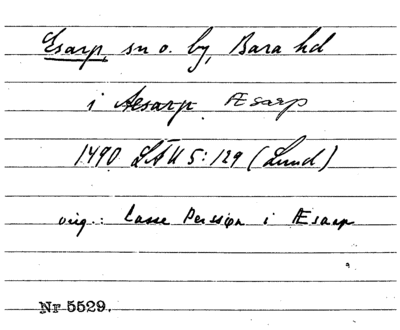 Esarp, sn o. by, Bara hd
i Aesarp Æsarp
1490 LÄU 5:129 (Lund)
orig.: Lasse Perssøn i Æsarp
Nr 5529.